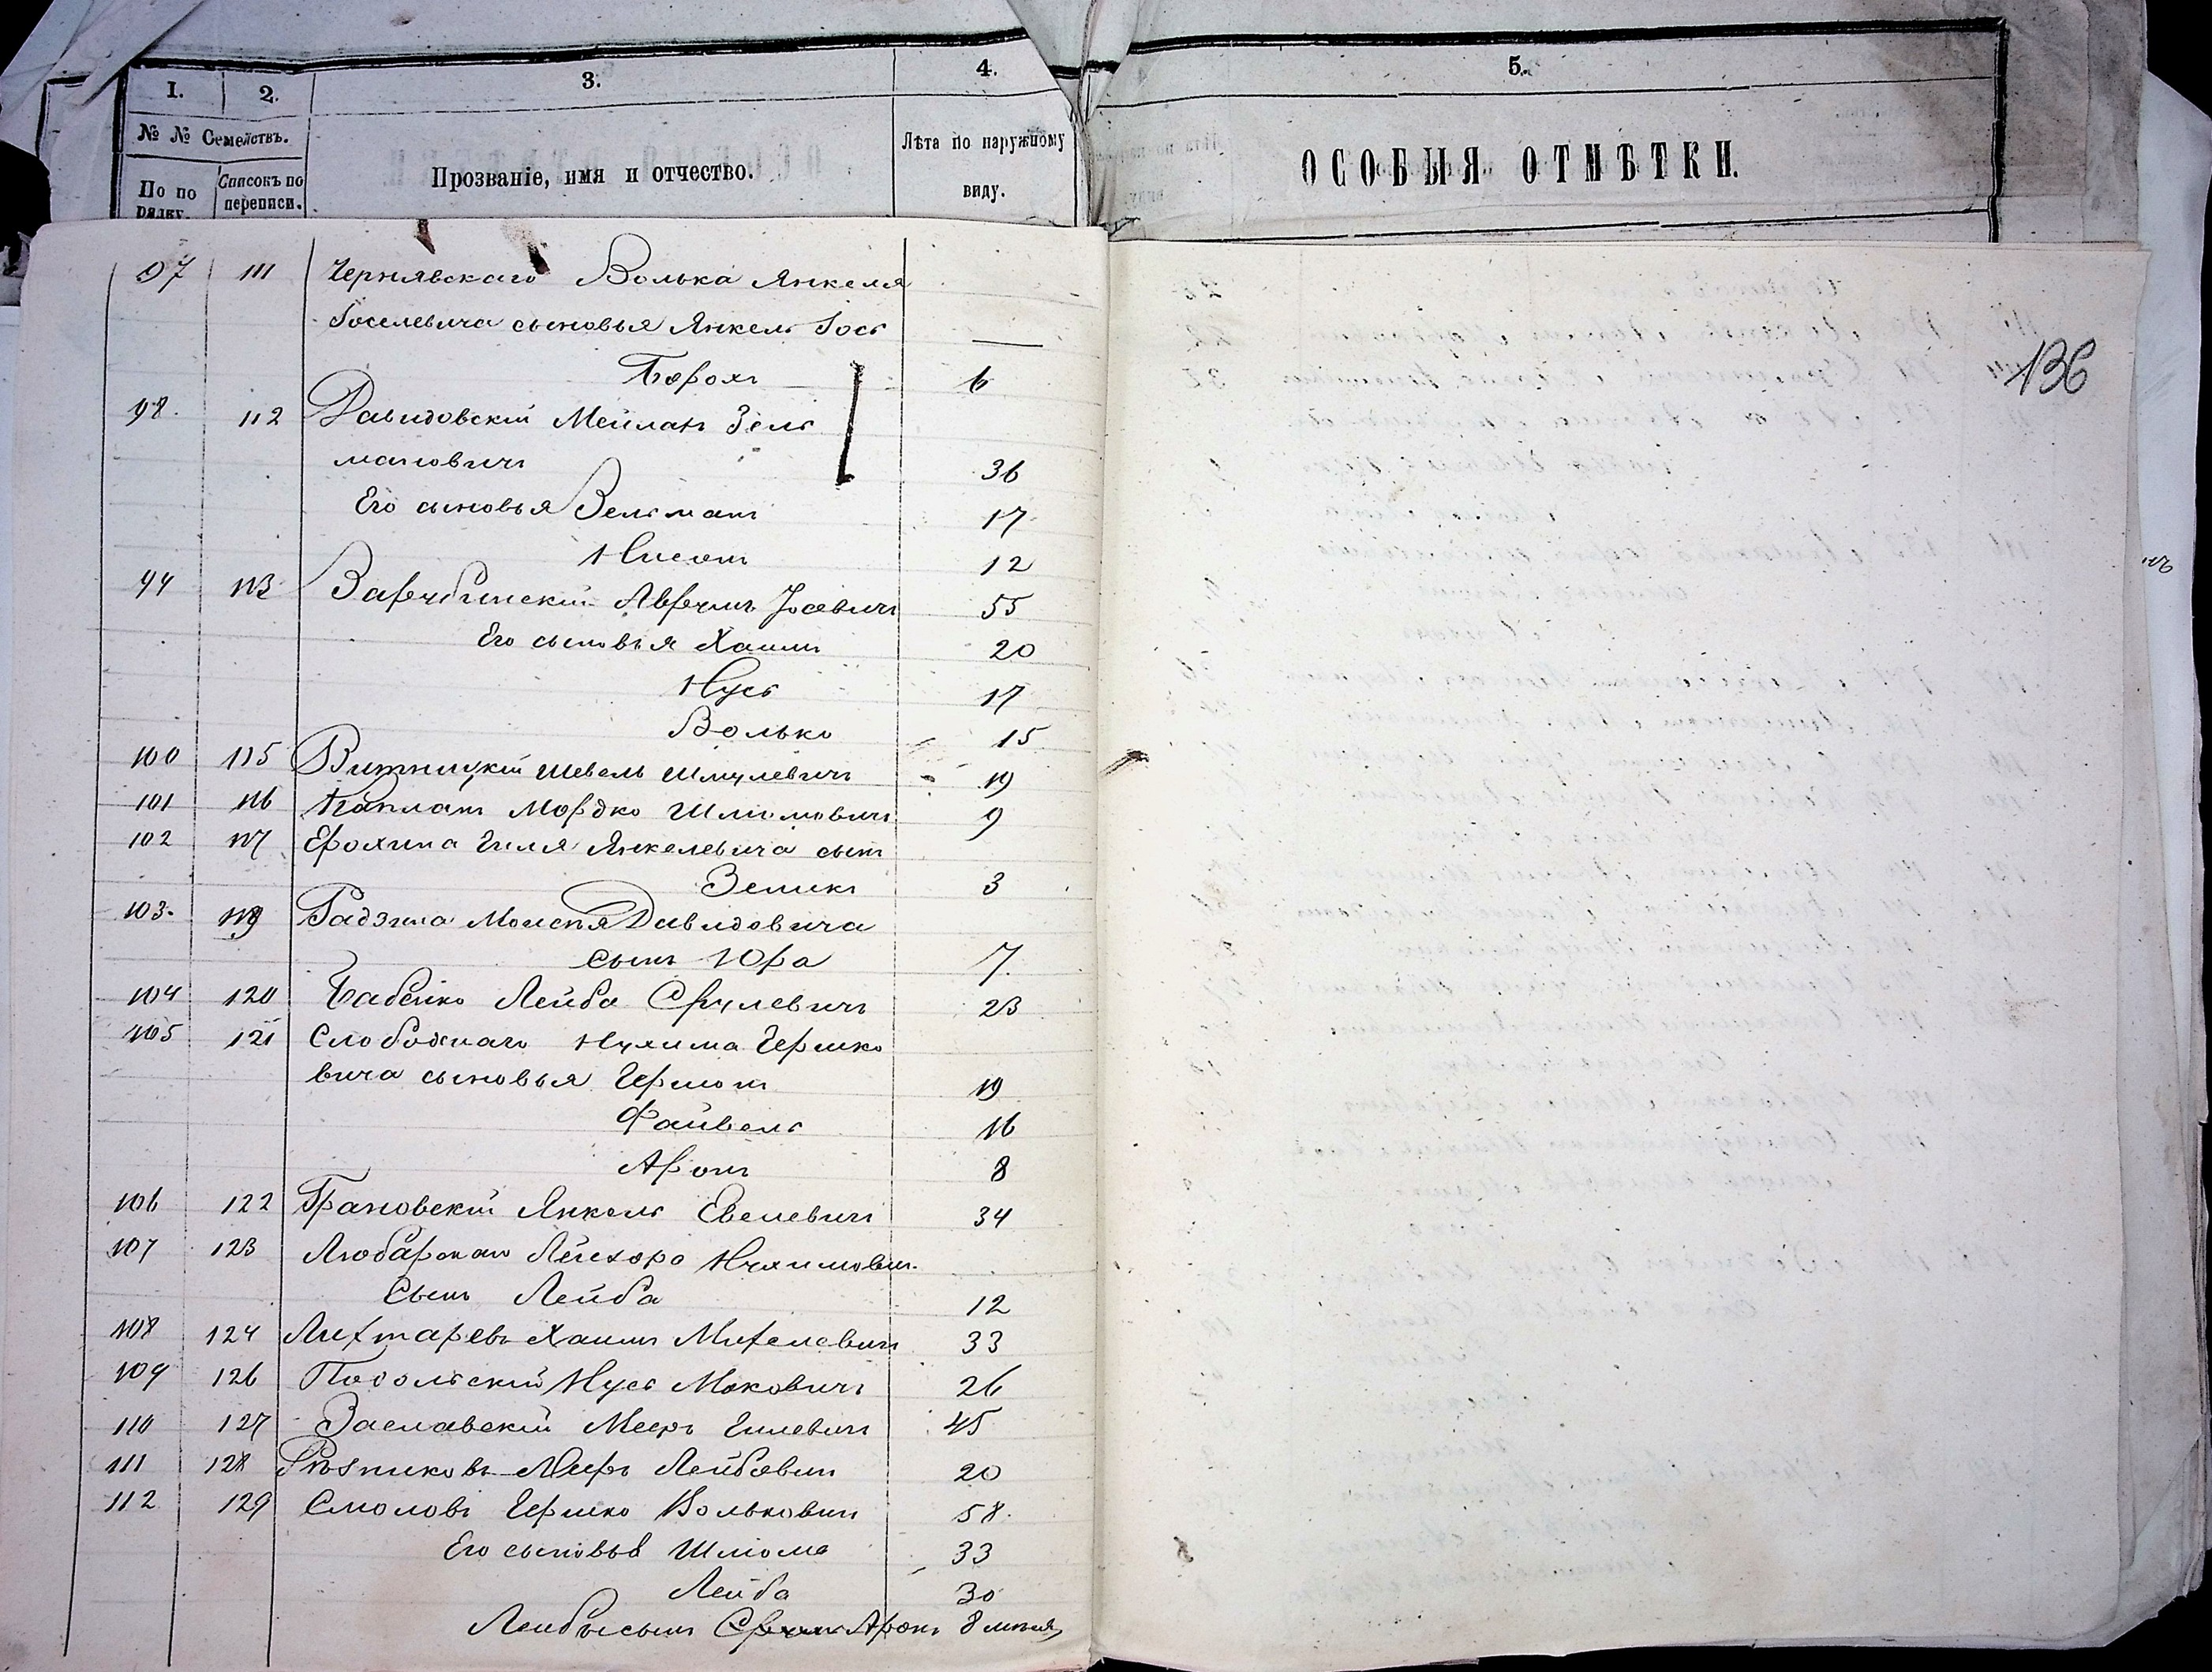 1. 2. 3. 4. 5.
№ № Семействъ.
По по рядку. Списокъ по переписи. Прозваніе, имя и отчество. Лѣта по наружному виду. ОСОБЫЯ ОТМѢТКИ.
136
97 111 Чернявскаго Волька Янкеля
Іоселевича сыновья Янкель Іось —
Борохъ 6
98. 112 Давидовскій Мейлах Зель
мановичъ 36
Его сыновья Зельманъ 17
Нисонъ 12
99 113 Аврумъ Іосевичъ 55
Его сыновья Хаимъ 20
Нусь 17
Волько 15
100 115 Витницкій Шевель Шмулевичъ 19
101 116 Капланъ Мордко Шліомовичъ 9
102 117 Ерохима Гиля Янкелевича сынъ
Зеликъ 3
103. 119 Радзина Моисея Давидовича
сынъ Юра 7
104 120 Бабейко Лейба Срулевичъ 23
105 121 Слободскаго Нухима Гершко
вича сыновья Гершонъ 19
Файвель 16
Аронъ 8
106 122 Грановскій Янкель Евелевичъ 34
107 123 Любарскаго Нухимович.
Сынъ Лейба 12
108 124 Лихтаревъ Хаимъ Михелевич 33
109 126 Подольскій Нусь Мошковичъ 26
110 127 Заславскій Мееръ Гилевичъ 45
111 128 Рѣзниковъ Меръ Лейбович 20
112 129 Смоловъ Гершко Вольковичъ 58.
Его сыновья Шліома 33
Лейба 30
Лейбы сынъ Аронъ 8